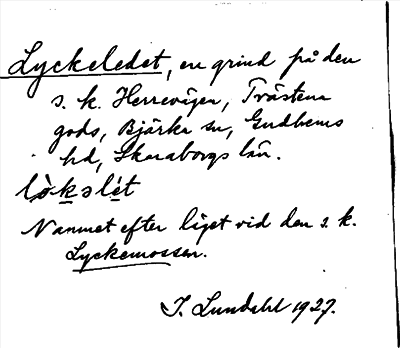 Lyckeledet, en grind på den
s. k. Herrevägen, Tvåstena
gods, Bjärka sn, Gudhems
hd, Skaraborgs län.
lò̤kəlét
Namnet efter läget vid den s. k.
Lyckemossen.
I. Lundahl 1927.